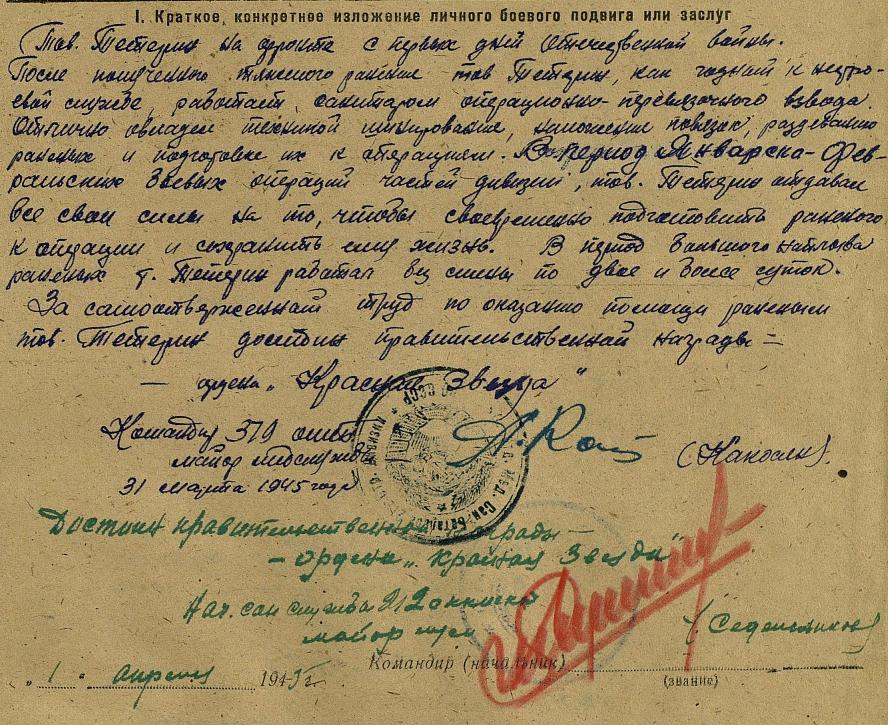 I. Краткое, конкретное изложение личного боевого подвига или заслуг
Тов. Тетерин на фронте с первых дней Отечественной войны.
После полученного тяжелого ранения тов Тетерин, как годный к нестро-
евой службе, работает санитаром операционно-перевязочного взвода.
Отлично овладел техникой шинирования, наложении повязок, раздеванию
раненых и подготовке их к операциям. В период Январско-Фев-
ральских боевых операций частей дивизии, тов. Тетерин отдавал
все свои силы на то, чтобы своевременно подготовить раненого
к операции и сохранить ему жизнь. В период большого наплыва
раненых т. Тетерин работал без смены по двое и более суток.
За самоотверженный труд по оказанию помощи раненым
тов. Тетерин достоин правительственной награды —
— ордена „Красная Звезда"
Командир 379 омсб
майор медслужбы
31 марта 1945 года
Достоин правительственной награды —
— ордена „Красная Звезда"
Нач. сан службы 212
майор м/с
Командир (начальник)
„1" апреля 1945 г.
(звание)